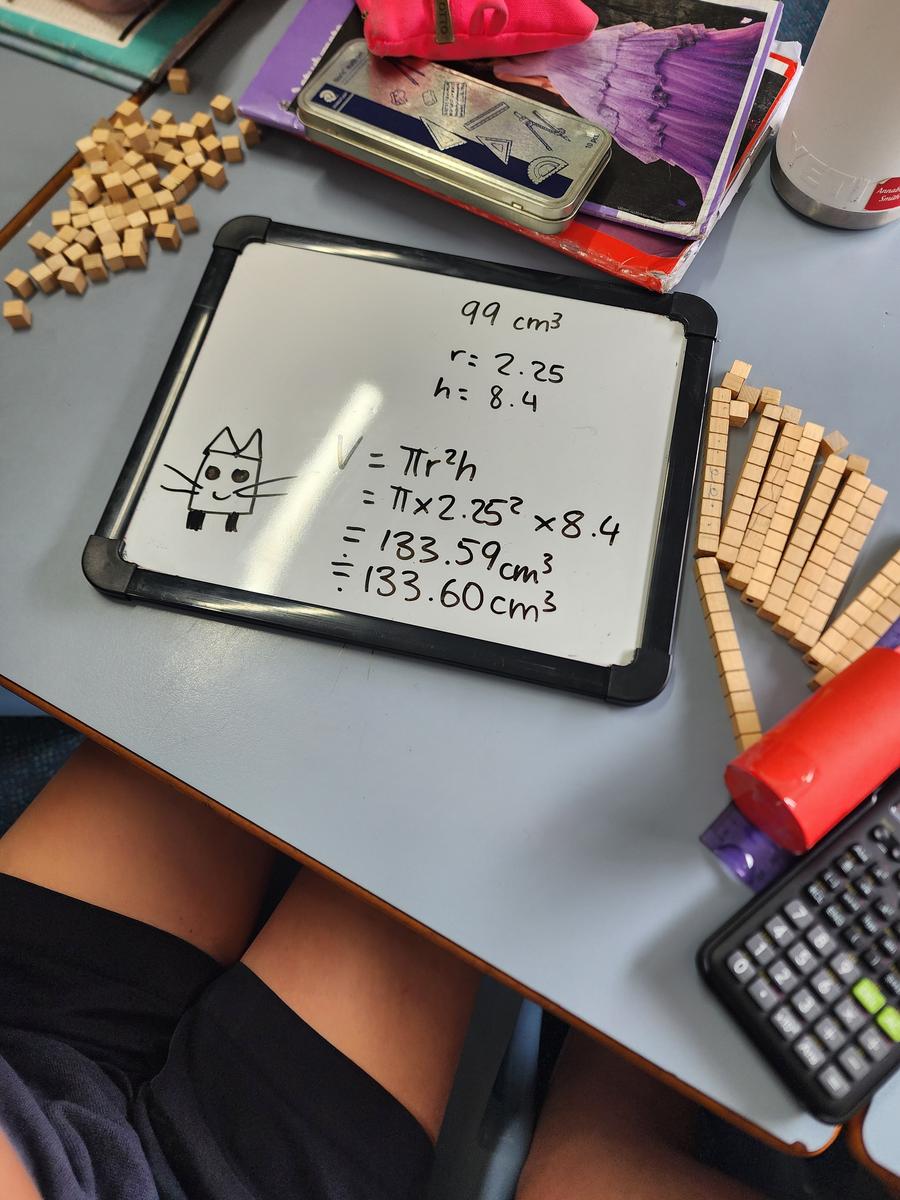 99 cm³
r= 2.25
h= 8.4
V = πr²h
= π×2.25² ×8.4
= 133.59cm³
≐ 133.60cm³
YETI